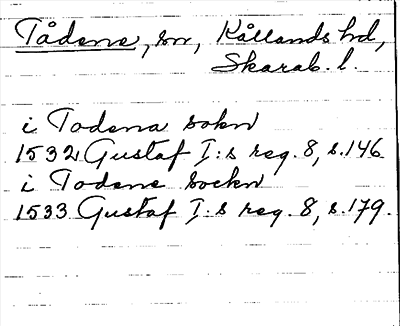 Tådene, sn, Kållands hd,
Skarab. l.
i Todena sokn
1532 Gustaf I:s reg. 8, s. 146.
i Todene sockn
1533 Gustaf I:s reg. 8, s. 179.